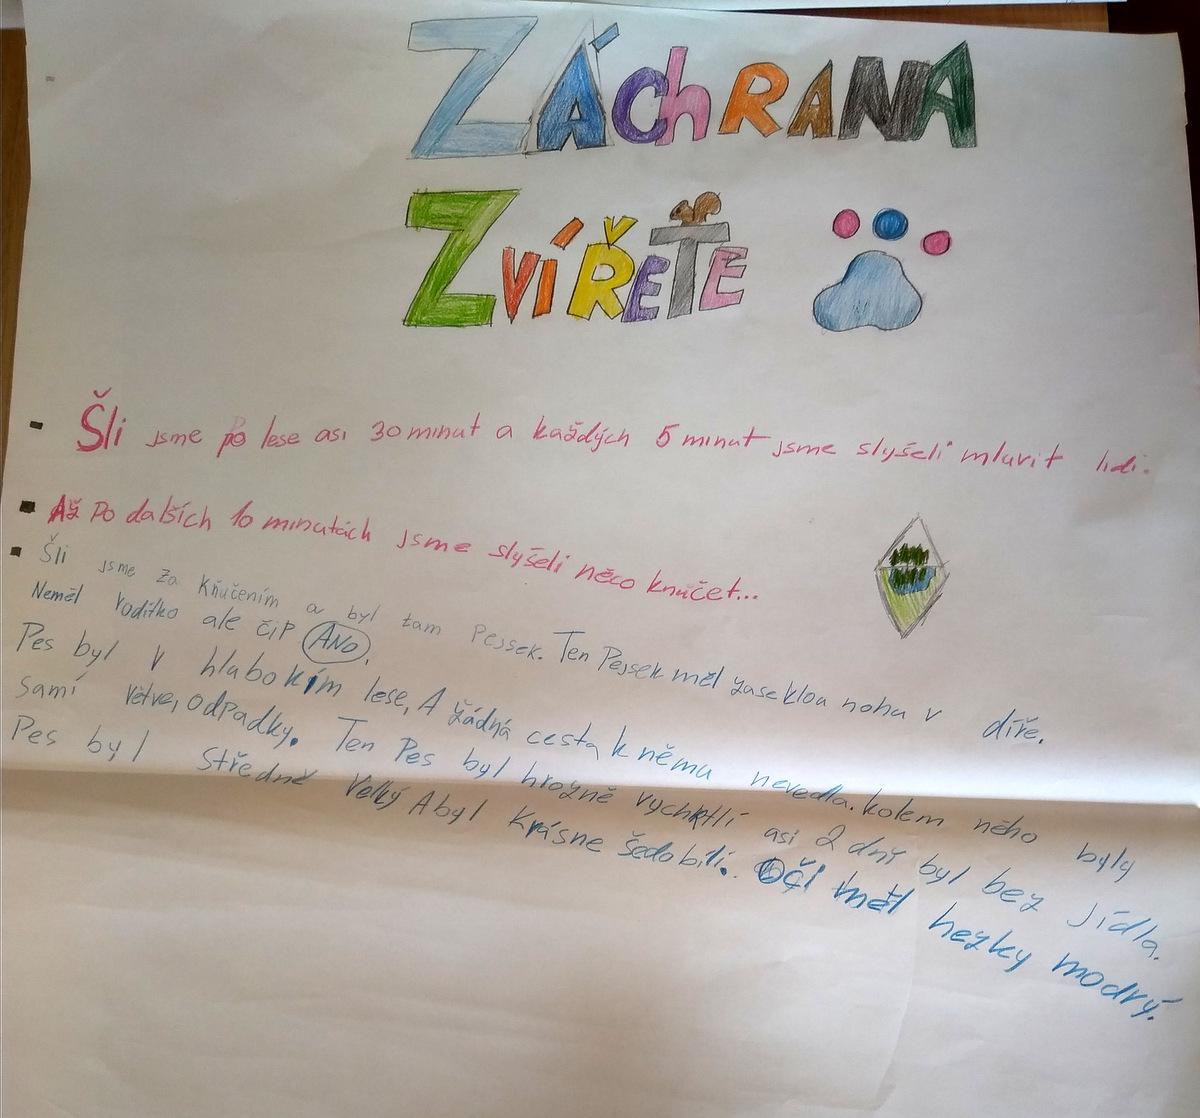 ZÁChRANA
ZVÍŘETE
- Šli jsme po lese asi 30 minut a každých 5 minut jsme slyšeli mluvit lidi.
- Až Po dalších 10 minutách jsme slyšeli něco knučet...
- Šli jsme za Kňučením a byl tam Pejsek. Ten Pejsek měl zaseklou nohu v díře.
Neměl vodítko ale čiP ANO.
Pes byl v hlubokím lese, A žádná cesta k němu nevedla. kolem něho byly
samí větve, odpadky. Ten Pes byl hrozně vychrtlí asi 2 dni byl bez jídla.
Pes byl Středně Velký A byl Krásne šedobílí. Oči měl hezky modrý.